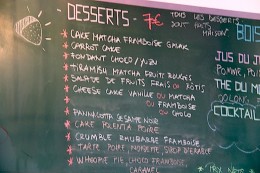 DESSERTS - 7€
TOUS LES DESSERTS
SONT FAITS
MAISON
* CAKE MATCHA FRAMBOISE
* CARROT CAKE
* FONDANT CHOCO / YUZU
* TIRAMISU MATCHA FRUIT ROUGES
* SALADE DE FRUITS FRAIS OU RÔTIS
* CHEESE CAKE VANILLE OU MATCHA
OU FRAMBOISE
OU CHOCO
PANNACOTTA SÉSAME NOIR
CAKE POLENTA POIRE
* CRUMBLE RHUBARBE FRAMBOISE
* TARTE POIRE, NOISETTE, SIROP D'ERABLE
* WHOOPIE PIE, CHOCO FRAMBOISE
CARAMEL
BOIS
JUS DU J
POMME, POI
THE DU M
COCKTAIL